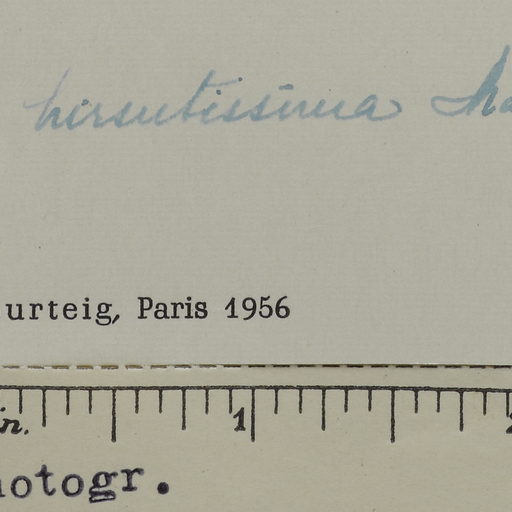 hirsutissima
urteig, Paris 1956
in. 1
otogr.